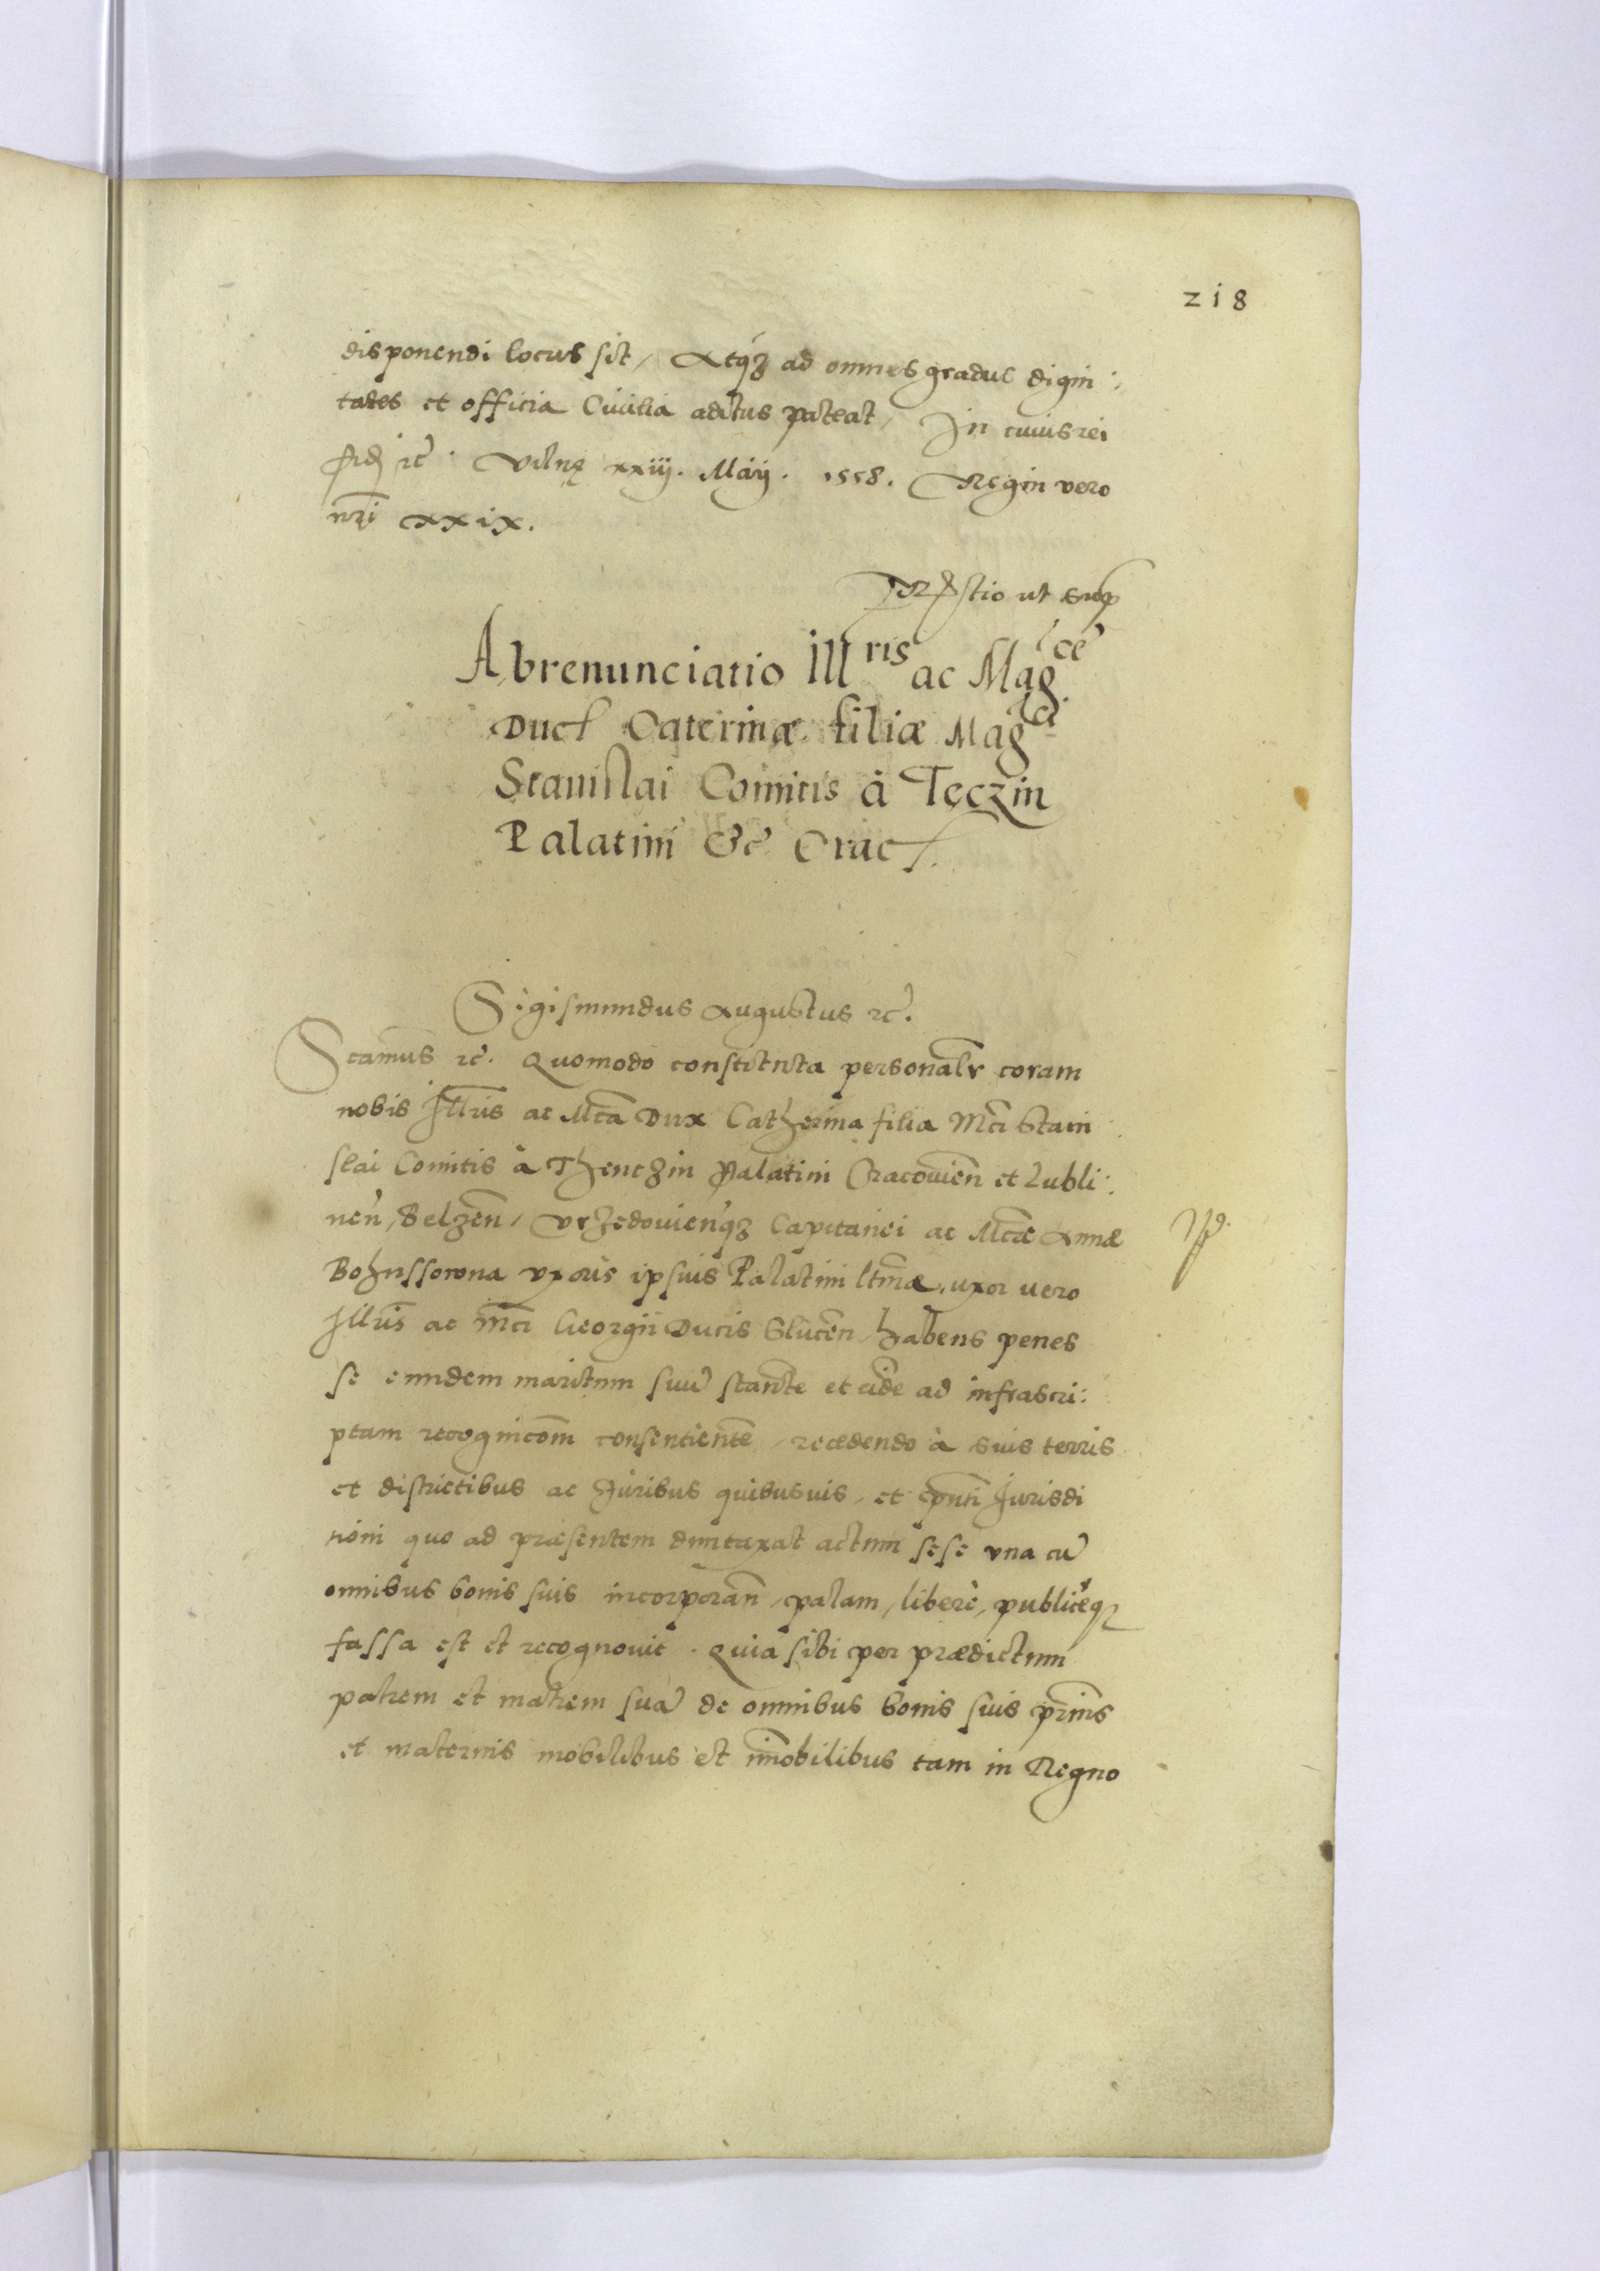 218
disponendi locus sit, Atq́з ad omnes gradus digni:
tates et officia Civilia aditus pateat, In cuius rei
fid rc̃. Vilnę xxiij. Maij. 1558. Regin vero
nr̃i xxix.
ut sup
Abrenunciatio Ill ris ac Mag cę
Duc Caterinæ filiæ Mag ci
Stanislai Comitis à Tęczin
Palatini &c Crac.
Sigismundus Augustus rc̃.
Scamus rc̃. Quomodo constituta personalr̃ coram
nobis Illris ac Mca Dux Catherina filia Mci Stani
slai Comitis à Thenczin Palatini Cracovien̄ et Lubli:
nen̄, Belzen̄, Vrzedovien̄qз Capitanei ac Mcæ Annæ
Bohussowna vxoris ipsius Palatini ltmæ, uxor vero
Illris ac Mci Georgii Ducis Slucen̄, habens penes
se eundem maritum suū stantē et eidē ad infrascri:
ptam recognicōm consentientē, recedendo à suis terris
et districtibus ac Iuribus quibusvis, et pn̄ti Iurisdi
tioni quo ad præsentem duntaxat actum sese vna cū
omnibus bonis suis incorporan̄, palam, liberè, publicèq
fassa est et recognovit. Quia sibi per prædictum
patrem et matrem suā de omnibus bonis suis prn̄is
et maternis mobilibus et im̄obilibus tam in Regno